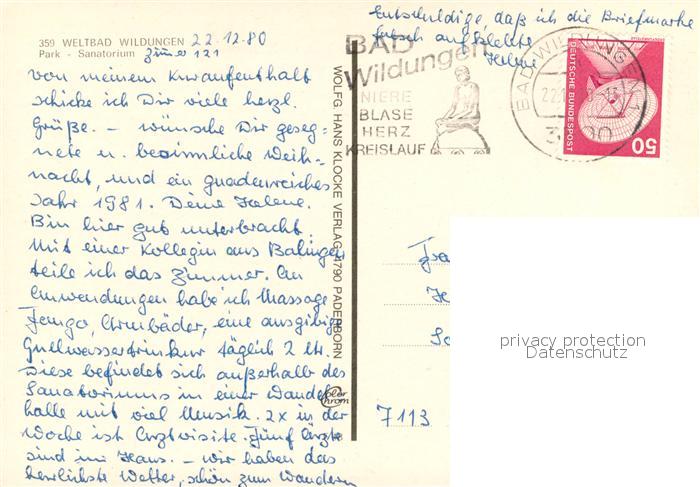 Entschuldige, daß ich die Briefmarke
falsch aufklebte
Helene
359 WELTBAD WILDUNGEN 22.12.80
Park - Sanatorium Zimmer 121
Von meinem Kuraufenthalt
schicke ich Dir viele herzl.
Grüße. – wünsche Dir geseg-
nete u. besinnliche Weih-
nacht, und ein gnadenreiches
Jahr 1981. Deine Helene.
Bin hier gut unterbracht.
Mit einer Kollegin aus Balingen
teile ich das Zimmer. An
Anwendungen habe ich Massage
Fango, Armbäder, eine ausgibige
Quellwassertrinkur täglich 2 ltr.
Diese befindet sich außerhalb des
Sanatoriums in einer Wandel
halle mit viel Musik. 2x in der
Woche ist Arztvisite. Fünf Ärzte
sind im Haus. – wir haben das
herrlichste Wetter, schön zum Wandern
WOLFG. HANS KLOCKE VERLAG 4790 PADERBORN
Color
Chrom
BAD
Wildungen
NIERE
BLASE
HERZ
KREISLAUF
BAD WILDUNG
1
DEUTSCHE BUNDESPOST
50
7113
privacy protection
Datenschutz